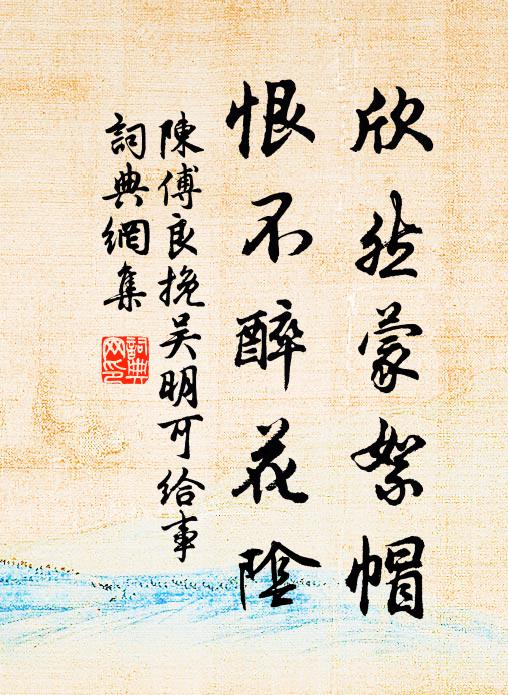 欣然蒙絮帽
恨不醉花陰
陳傅良挽吳明可給事
詞典網集
詞典網印